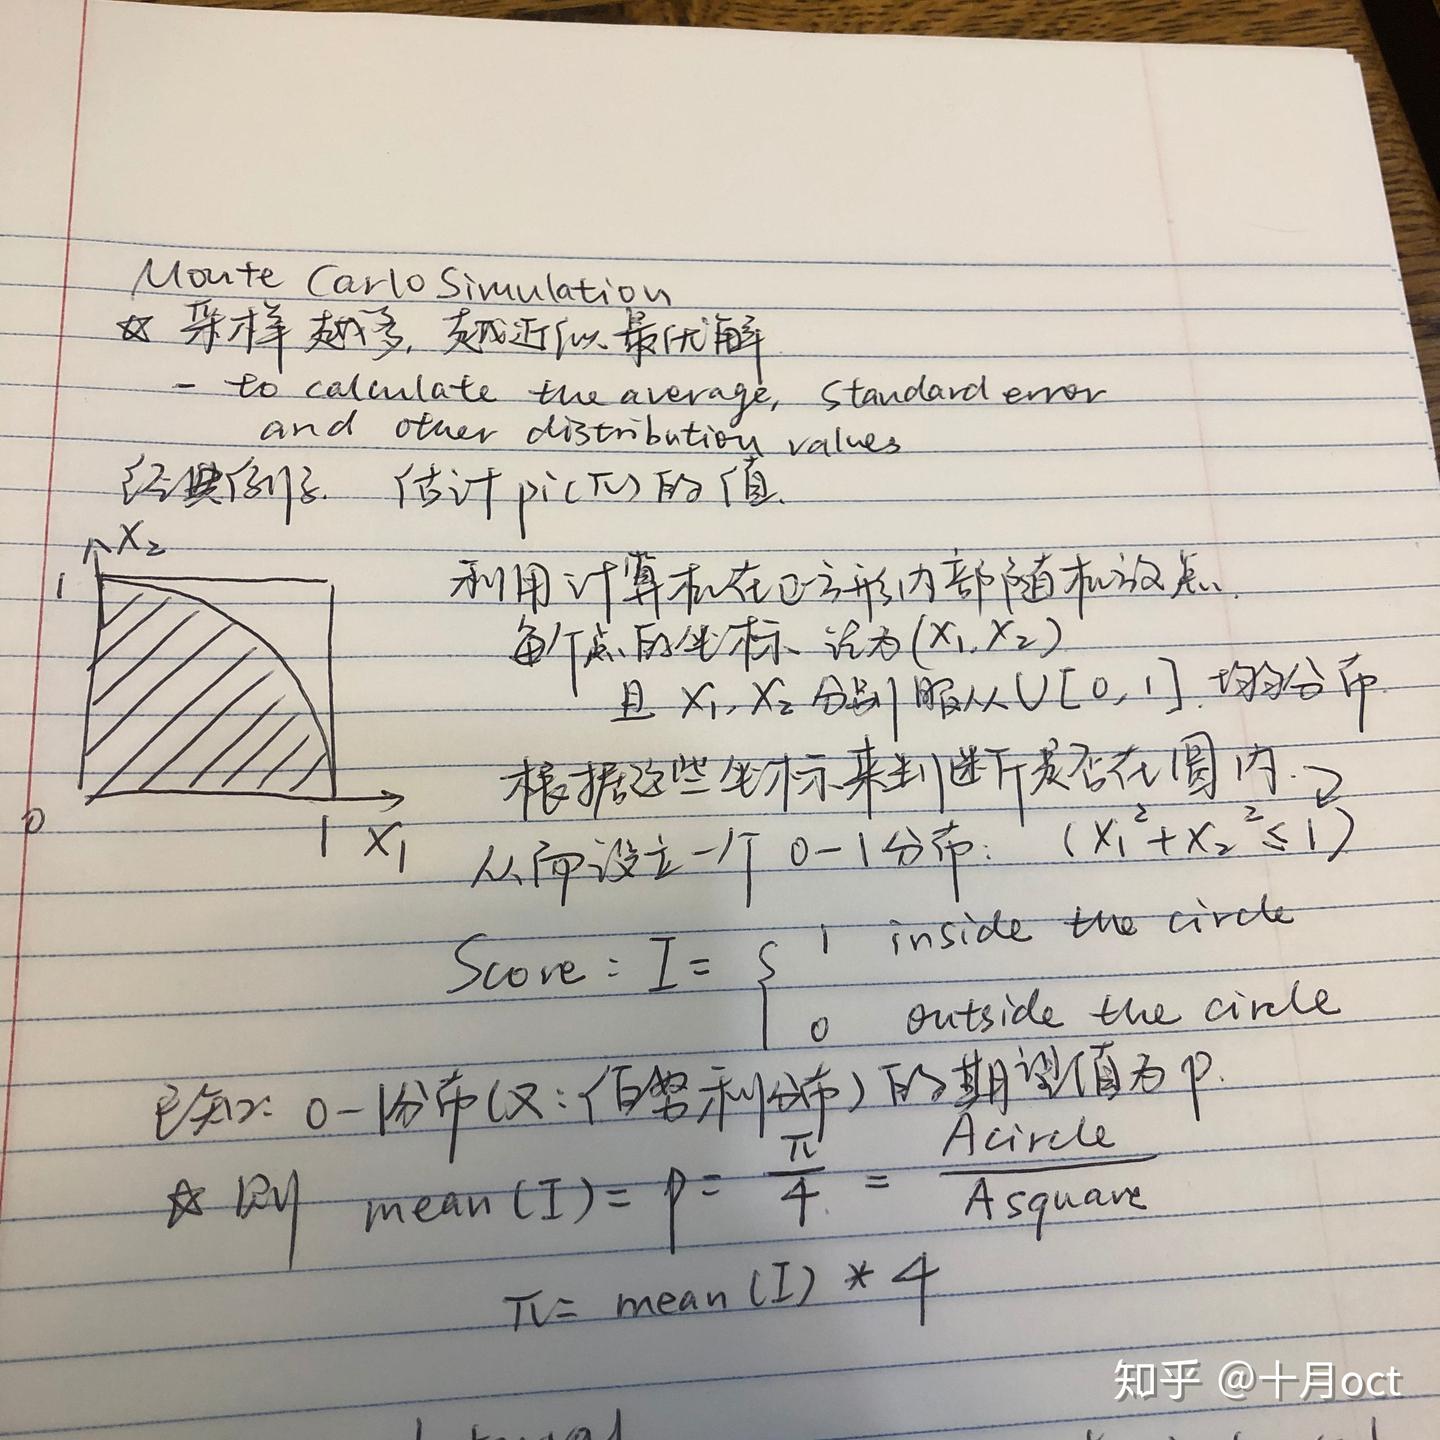 Monte Carlo Simulation
☆ 采样越多, 越近似最优解
- to calculate the average, standard error
and other distribution values
经典例子. 估计pi(π)的值.
X₂
1
0
1 X₁
利用计算机在正方形内部随机放点.
每个点的坐标 记为(X₁, X₂)
且 X₁, X₂ 分别服从U[0,1]. 均匀分布
根据这些坐标来判断是否在圆内.
从而设立一个 0-1分布: (X₁²+X₂²≤1)
Score: I= { 1 inside the circle
0 outside the circle
已知: 0-1分布(又:伯努利分布)的期望值为p.
☆ 即 mean(I)= p= π/4 = Acircle/Asquare
π= mean(I) * 4
知乎 @十月oct